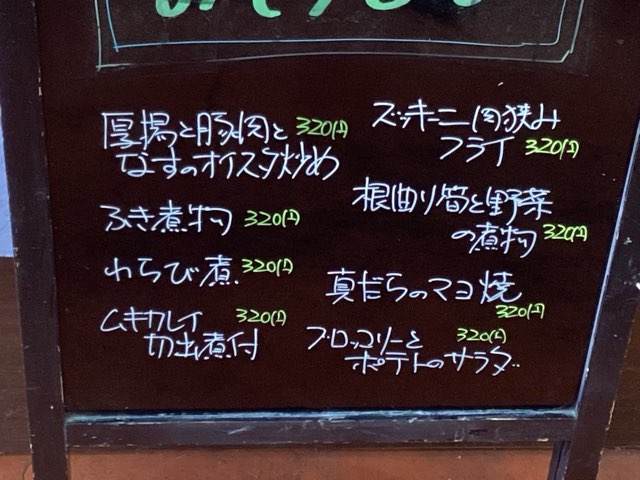 厚揚と豚肉と 320円
なすのオイスタ炒め
ふき煮物 320円
わらび煮 320円
ムキカレイ 320円
切出煮付
ズッキーニ肉挟み
フライ 320円
根曲り筍と野菜
の煮物 320円
真だらのマヨ焼
320円
ブロッコリーと 320円
ポテトのサラダ